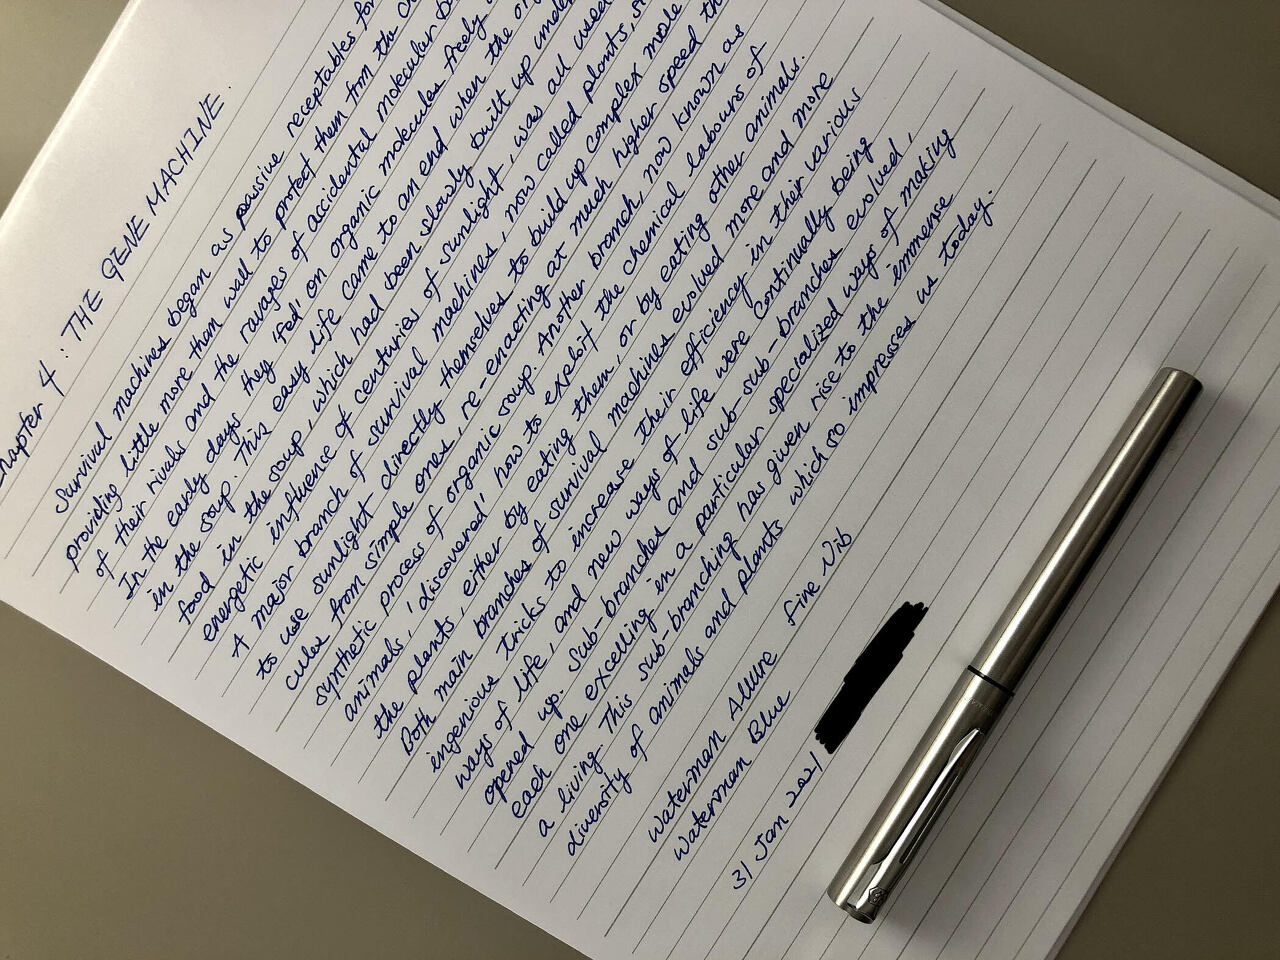 Chapter 4 : THE GENE MACHINE.
Survival machines began as passive receptables for
providing little more them wall to protect them from the
of their rivals and the ravages of accidental molecular
In the early days they 'fed' on organic molecules freely
in the soup. This easy life came to an end when the
food in the soup, which had been slowly built up under
energetic influence of centuries of sunlight, was all used
A major branch of survival machines, now called plants,
to use sunlight directly themselves to build up complex mole
cules from simple ones, re-enacting at much higher speed
synthetic process of organic soup. Another branch, now known as
animals, 'discovered' how to exploit the chemical labours of
the plants, either by eating them, or by eating other animals.
Both main branches of survival machines evolved more and more
ingenious tricks to increase their efficiency in their various
ways of life, and new ways of life were continually being
opened up. Sub-branches and sub-sub-branches evolved,
each one excelling in a particular specialized ways of making
a living. This sub-branching has given rise to the immense
diversity of animals and plants which so impresses us today.
Waterman Allure fine Nib
Waterman Blue
31 Jan 2021